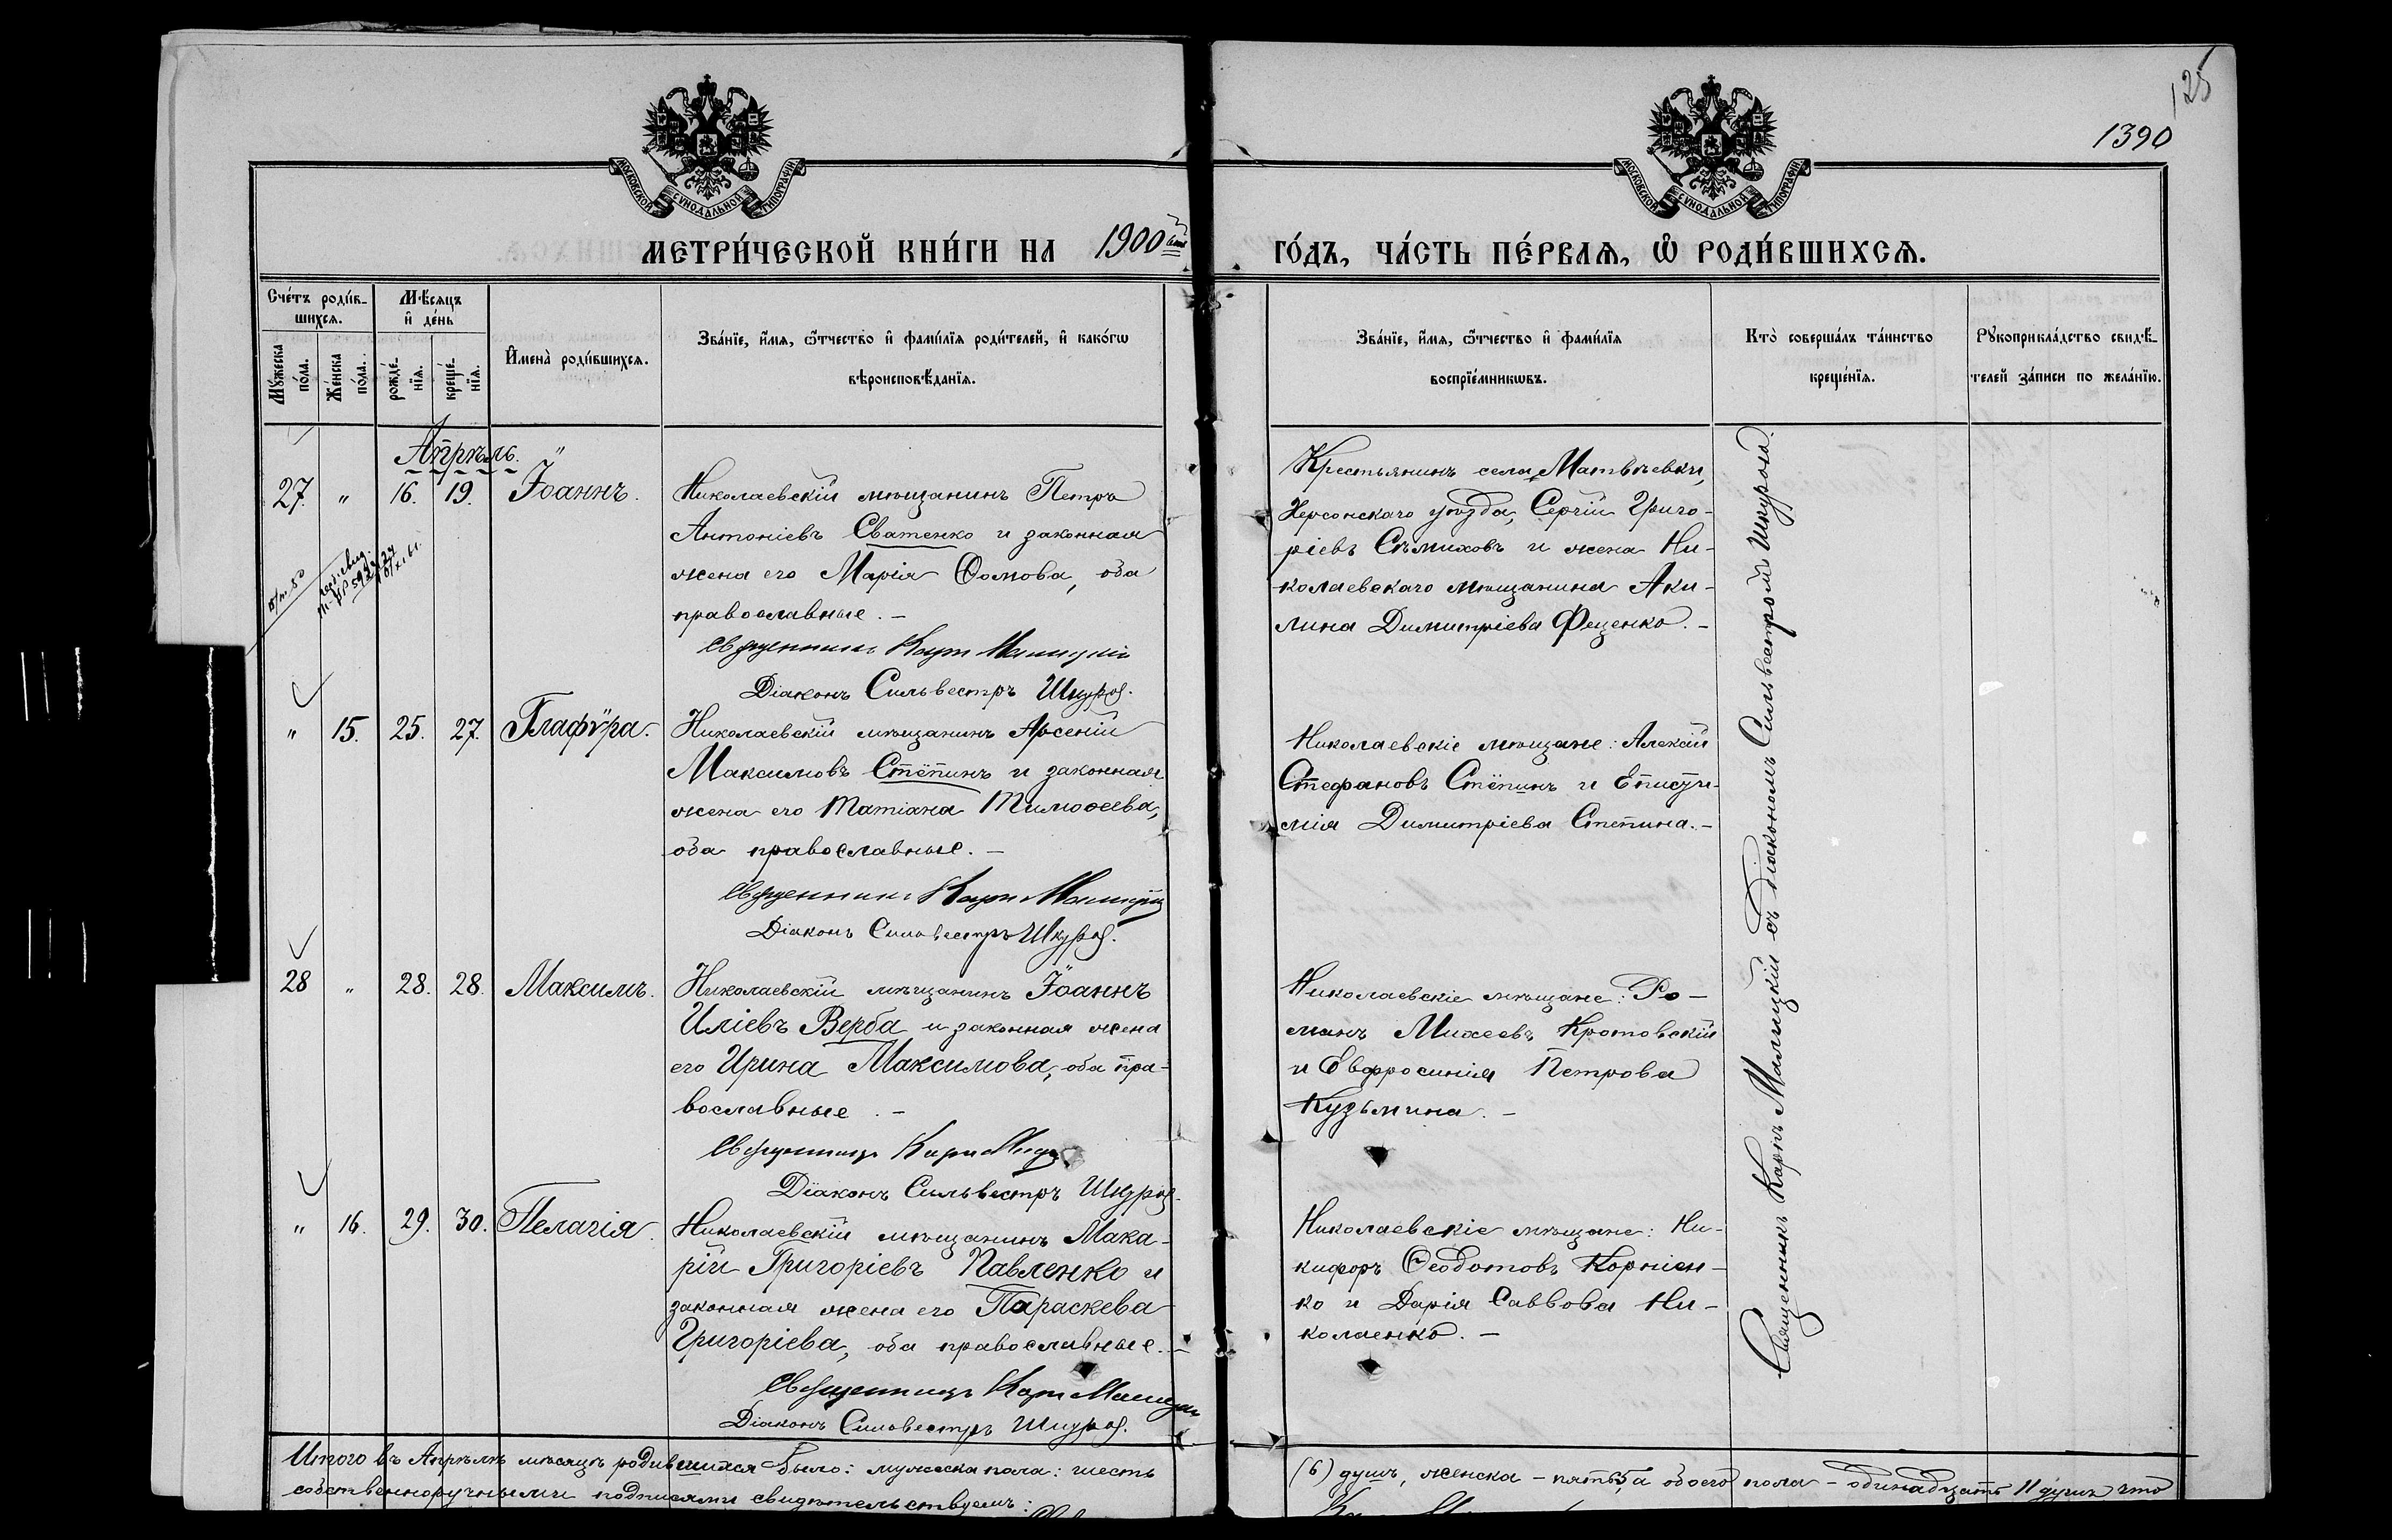 125
1390
МОСКОВСКОЙ СѴНОДАЛЬНОЙ ТИПОГРАФІИ
МОСКОВСКОЙ СѴНОДАЛЬНОЙ ТИПОГРАФІИ
МЕТРИ́ЧЕСКОЙ КНИ́ГИ НА 1900 ГО́ДЪ, ЧА́СТЬ ПЕ́РВАѦ, Ѽ РОДИ́ВШИХСѦ.
Сче́тъ роди́в-
шихсѧ.
Мѣ́сѧцъ
и҆ де́нь
Мꙋ́жеска
по́ла.
Же́нска
по́ла.
рожде́-
нїѧ.
креще́-
нїѧ.
И҆мена̀ роди́вшихсѧ.
Зва́нїе, и҆́мѧ, ѻ҆́тчество и҆ фами́лїѧ роди́телей, и҆ како́гѡ
вѣроисповѣ́данїѧ.
Зва́нїе, и҆́мѧ, ѻ҆́тчество и҆ фами́лїѧ
воспрїе́мникѡвъ.
Кто̀ соверша́лъ та́инство
креще́нїѧ.
Рꙋкоприкла́дство свидѣ́-
телей за́писи по жела́нїю.
Апрѣль.
27. " 16. 19. Іоаннъ.
Николаевскій мѣщанинъ Петръ
Антоніевъ Сватенко и законная
жена его Марія Ѳомова, оба
православные. –
Священникъ Карпъ Малицкій
Діаконъ Сильвестръ Шкуро.
Крестьянинъ села Матвѣевки,
Херсонскаго уѣзда, Сергій Григо-
ріевъ Сѣмиховъ и жена Ни-
колаевскаго мѣщанина Аки-
лина Димитріева Феценко. –
" 15. 25. 27. Глафѵра.
Николаевскій мѣщанинъ Арсеній
Максимовъ Стёпинъ и законная
жена его Татіана Тимоѳеева,
оба православные. –
Священникъ Карпъ Малицкій
Діаконъ Сильвестръ Шкуро.
Николаевскіе мѣщане: Алексій
Стефановъ Стёпинъ и Еписти-
мія Димитріева Степина. –
28 " 28. 28. Максимъ.
Николаевскій мѣщанинъ Іоаннъ
Иліевъ Верба и законная жена
его Ирина Максимова, оба пра-
вославные. –
Священникъ Карпъ
Діаконъ Сильвестръ Шкуро.
Николаевскіе мѣщане: Ро-
манъ Михеевъ Кротовскій
и Евфросинія Петрова
Кузьмина. –
" 16. 29. 30. Пелагія.
Николаевскій мѣщанинъ Мака-
рій Григоріевъ Павленко и
законная жена его Параскева
Григоріева, оба православные. –
Священникъ Карпъ Малицкій
Діаконъ Сильвестръ Шкуро.
Николаевскіе мѣщане: Ни-
кифоръ Ѳеодотовъ Корніен-
ко и Дарія Саввова Ни-
колаенко. –
Священникъ Карпъ Малицкій съ діакономъ Сильвестромъ Шкурой.
Итого въ Апрѣлѣ мѣсяцѣ родившихся было: мужеска пола: шесть
(6) душъ, женска – пять 5, а обоего пола – одинадцать 11 душъ что
собственноручными подписями свидѣтельствуемъ: